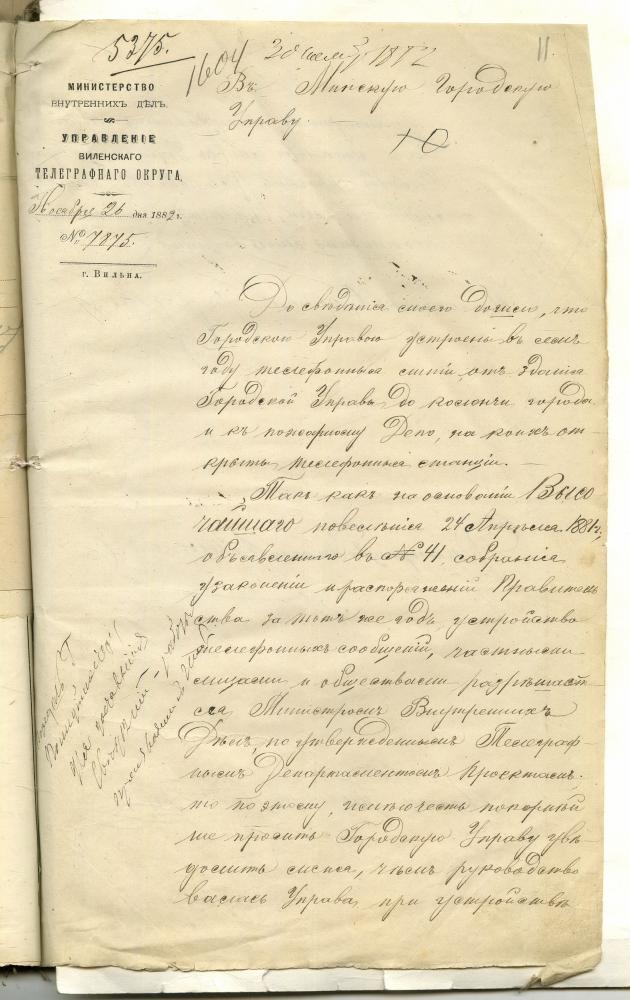 5275.
1604 30 1882
11
Въ Минскую Городскую
Управу.
10
МИНИСТЕРСТВО
ВНУТРЕННИХЪ ДѢЛЪ.
УПРАВЛЕНІЕ
ВИЛЕНСКАГО
ТЕЛЕГРАФНАГО ОКРУГА,
Ноября 26 дня 1882 г.
№ 7875.
г. Вильна.
До свѣдѣнія моего дошло, что
Городскою Управою устроены въ семъ
году телефонныя линіи отъ зданія
Городской Управы до города
и къ пожарному Депо, на коихъ от-
крыты телефонныя станціи. —
Такъ какъ на основаніи Высо
чайшаго повелѣнія 24 Апрѣля 1881 г,
объявленнаго въ № 41, собранія
узаконеній и распоряженій Правитель
ства за тотъ же годъ, устройство
телефонныхъ сообщеній, частными
лицами и обществами разрѣшает-
ся Министромъ Внутреннихъ
Дѣлъ, по утвержденнымъ Телеграф-
нымъ Департаментомъ проектамъ.
то поэтому, имѣю честь покорнѣй
ше просить Городскую Управу увѣ
домить меня, чѣмъ руководство
валась Управа, при устройствѣ